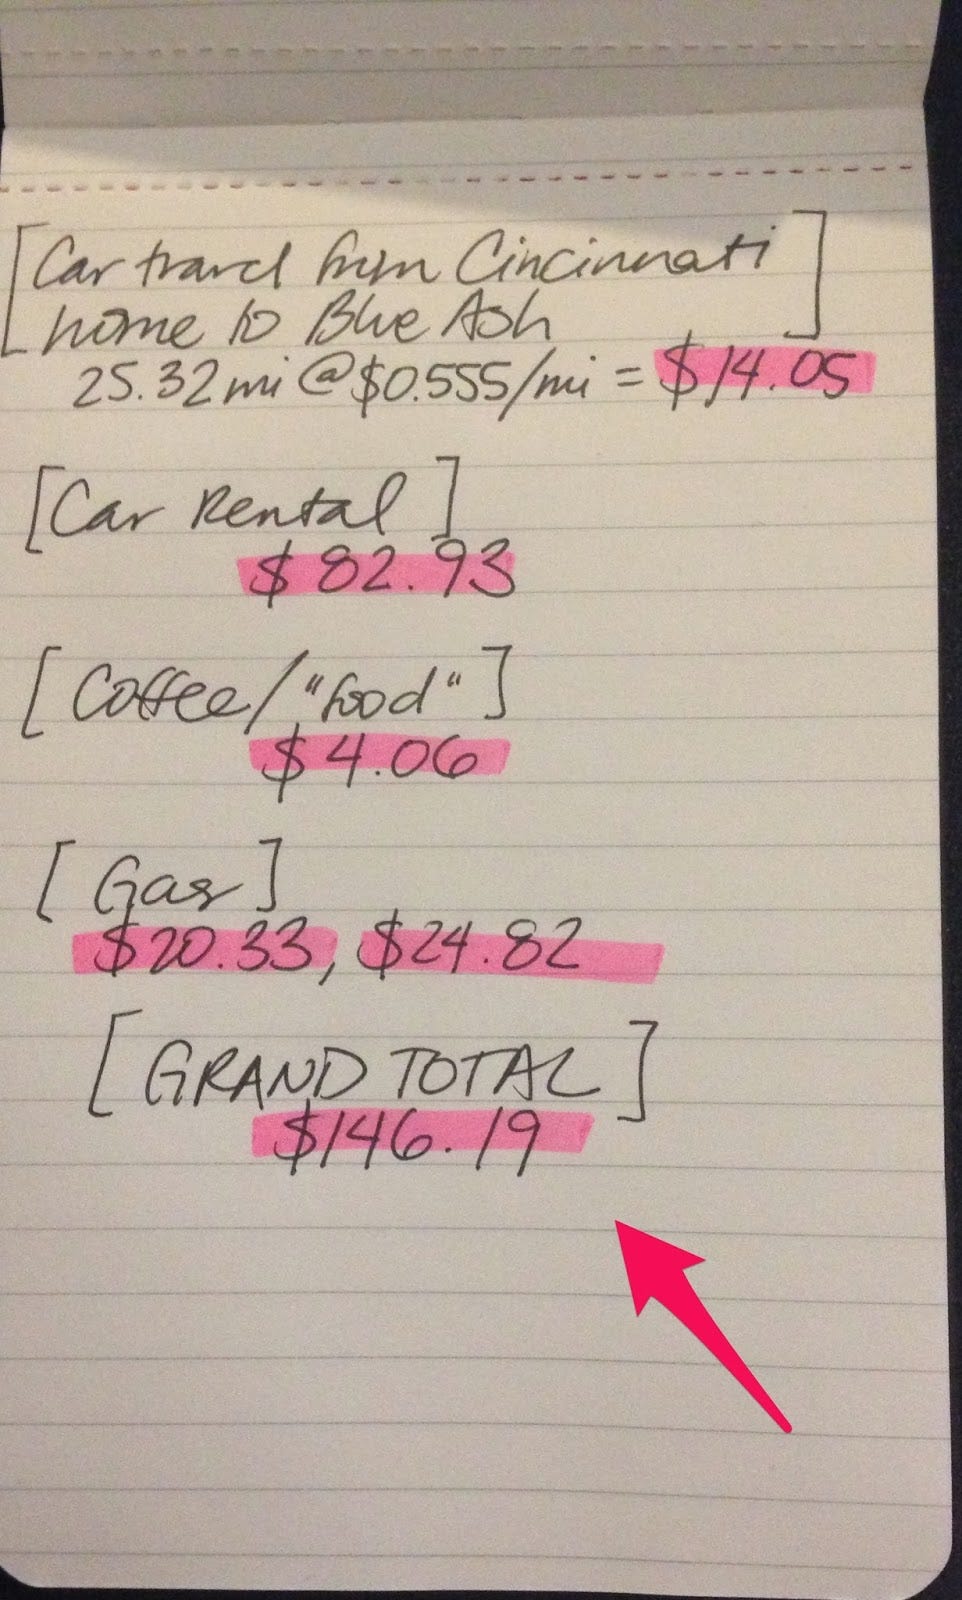 [Car travel from Cincinnati
home to Blue Ash]
25.32mi @ $0.555/mi = $14.05
[Car Rental]
$82.93
[Coffee/"food"]
$4.06
[Gas]
$20.33, $24.82
[GRAND TOTAL]
$146.19